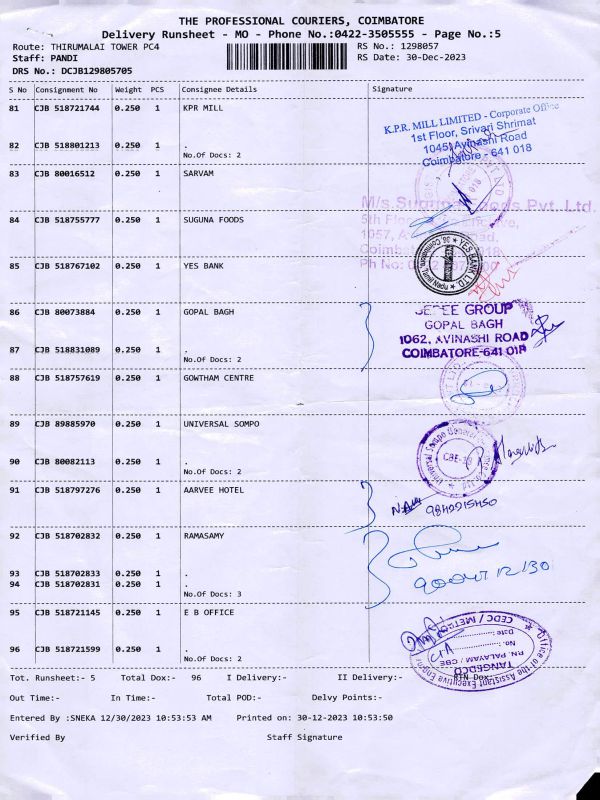 THE PROFESSIONAL COURIERS, COIMBATORE
Delivery Runsheet - MO - Phone No.:0422-3505555 - Page No.:5
Route: THIRUMALAI TOWER PC4
RS No.: 1298057
Staff: PANDI
RS Date: 30-Dec-2023
DRS No.: DCJB129805705
S No Consignment No Weight PCS Consignee Details Signature
81 CJB 518721744 0.250 1 KPR MILL
K.P.R. MILL LIMITED - Corporate Office
1st Floor, Srivari Shrimat
1045, Avinashi Road
Coimbatore - 641 018
82 CJB 518801213 0.250 1 .
No.Of Docs: 2
83 CJB 80016512 0.250 1 SARVAM
M/s. Suguna Foods Pvt. Ltd.
5th Floor
1057,
84 CJB 518755777 0.250 1 SUGUNA FOODS
85 CJB 518767102 0.250 1 YES BANK
YES BANK LTD.
86 CJB 80073884 0.250 1 GOPAL BAGH
GROUP
GOPAL BAGH
1062, AVINASHI ROAD
COIMBATORE-641 018
87 CJB 518831089 0.250 1 .
No.Of Docs: 2
88 CJB 518757619 0.250 1 GOWTHAM CENTRE
89 CJB 89885970 0.250 1 UNIVERSAL SOMPO
Universal Sompo General
CBE-38
90 CJB 80082113 0.250 1 .
No.Of Docs: 2
91 CJB 518797276 0.250 1 AARVEE HOTEL
92 CJB 518702832 0.250 1 RAMASAMY
93 CJB 518702833 0.250 1 .
94 CJB 518702831 0.250 1 .
No.Of Docs: 3
95 CJB 518721145 0.250 1 E B OFFICE
Office of the Assistant Executive Engineer
TANGEDCO
P.N. PALAYAM / CBE
No:
Date:
CEDC / METRO
96 CJB 518721599 0.250 1 .
No.Of Docs: 2
Tot. Runsheet:- 5 Total Dox:- 96 I Delivery:- II Delivery:- RTN Dox:-
Out Time:- In Time:- Total POD:- Delvy Points:-
Entered By :SNEKA 12/30/2023 10:53:53 AM Printed on: 30-12-2023 10:53:50
Verified By Staff Signature